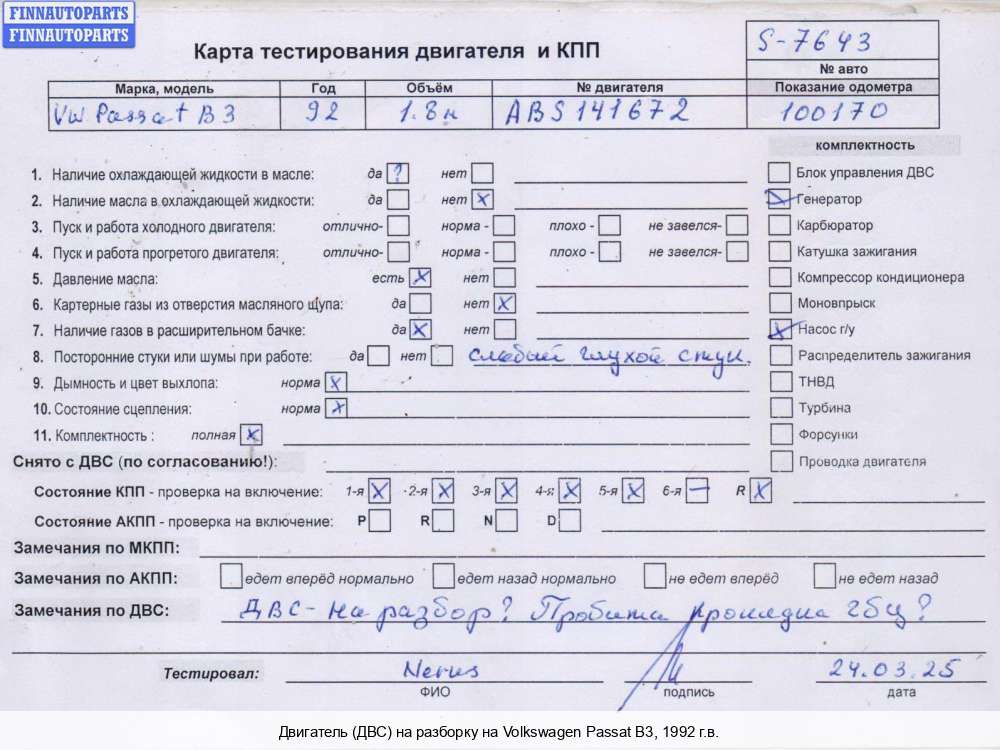 FINNAUTOPARTS
FINNAUTOPARTS
Карта тестирования двигателя и КПП
S-7643
№ авто
Марка, модель Год Объём № двигателя Показание одометра
VW Passat B3 92 1.8и ABS141672 100170
комплектность
1. Наличие охлаждающей жидкости в масле: да ? нет
Блок управления ДВС
2. Наличие масла в охлаждающей жидкости: да нет x
Генератор
3. Пуск и работа холодного двигателя: отлично- норма - плохо - не завелся-
Карбюратор
4. Пуск и работа прогретого двигателя: отлично- норма - плохо - не завелся-
Катушка зажигания
5. Давление масла: есть x нет
Компрессор кондиционера
6. Картерные газы из отверстия масляного щупа: да нет x
Моновпрыск
7. Наличие газов в расширительном бачке: да x нет
Насос г/у
8. Посторонние стуки или шумы при работе: да нет слабый глухой стук.
Распределитель зажигания
9. Дымность и цвет выхлопа: норма x
ТНВД
10. Состояние сцепления: норма x
Турбина
11. Комплектность : полная x
Форсунки
Снято с ДВС (по согласованию!):
Проводка двигателя
Состояние КПП - проверка на включение: 1-я x 2-я x 3-я x 4-я x 5-я x 6-я – R x
Состояние АКПП - проверка на включение: P R N D
Замечания по МКПП:
Замечания по АКПП: едет вперёд нормально едет назад нормально не едет вперёд не едет назад
Замечания по ДВС: ДВС - на разбор? Пробита прокладка гбц?
Тестировал: Nerus 24.03.25
ФИО подпись дата
Двигатель (ДВС) на разборку на Volkswagen Passat B3, 1992 г.в.